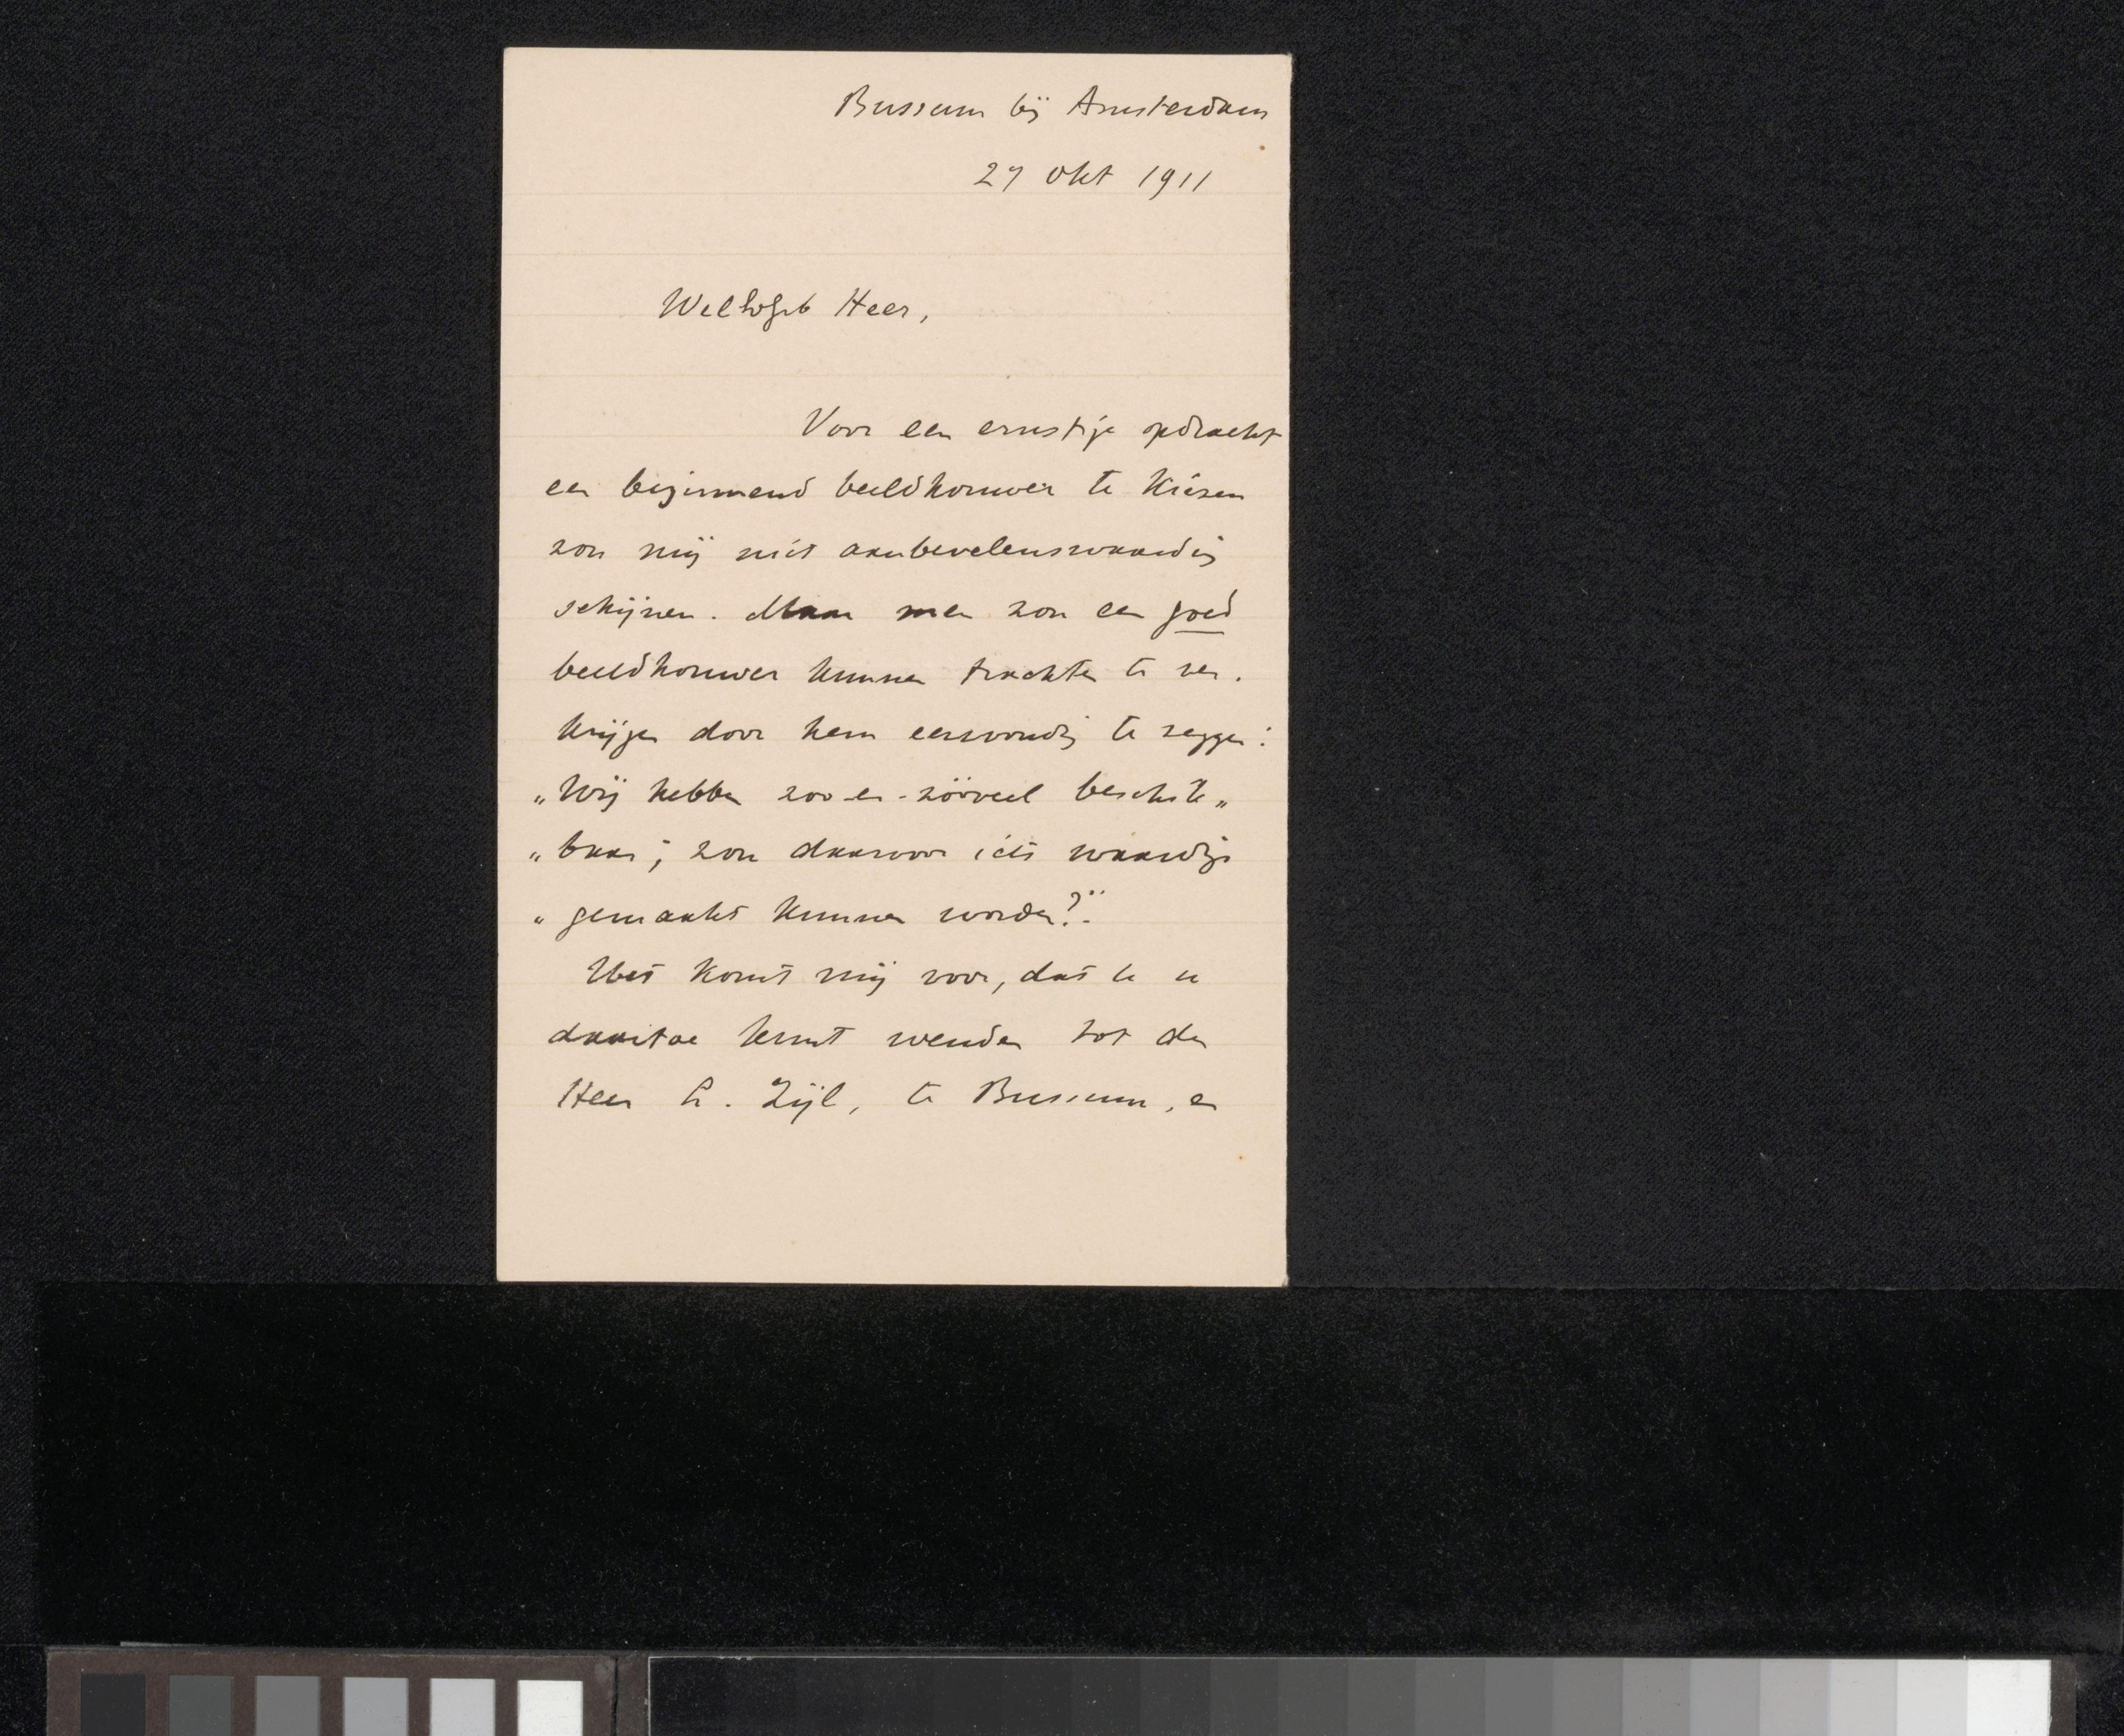 Bussum bij Amsterdam
27 Okt 1911
WelEdGeb Heer,
Voor een ernstige opdracht
een beginnend beeldhouwer te kiezen
zou mij niet aanbevelenswaardig
schijnen. Maar men zou een goed
beeldhouwer kunnen trachten te ver-
krijgen door hem eenvoudig te zeggen:
„Wij hebben zoo-en-zóóveel beschik„
„baar; zou daarvoor iets waardigs
„gemaakt kunnen worden?".
Het komt mij voor, dat u u
daartoe kunt wenden tot den
Heer L. Zijl, te Bussum, en